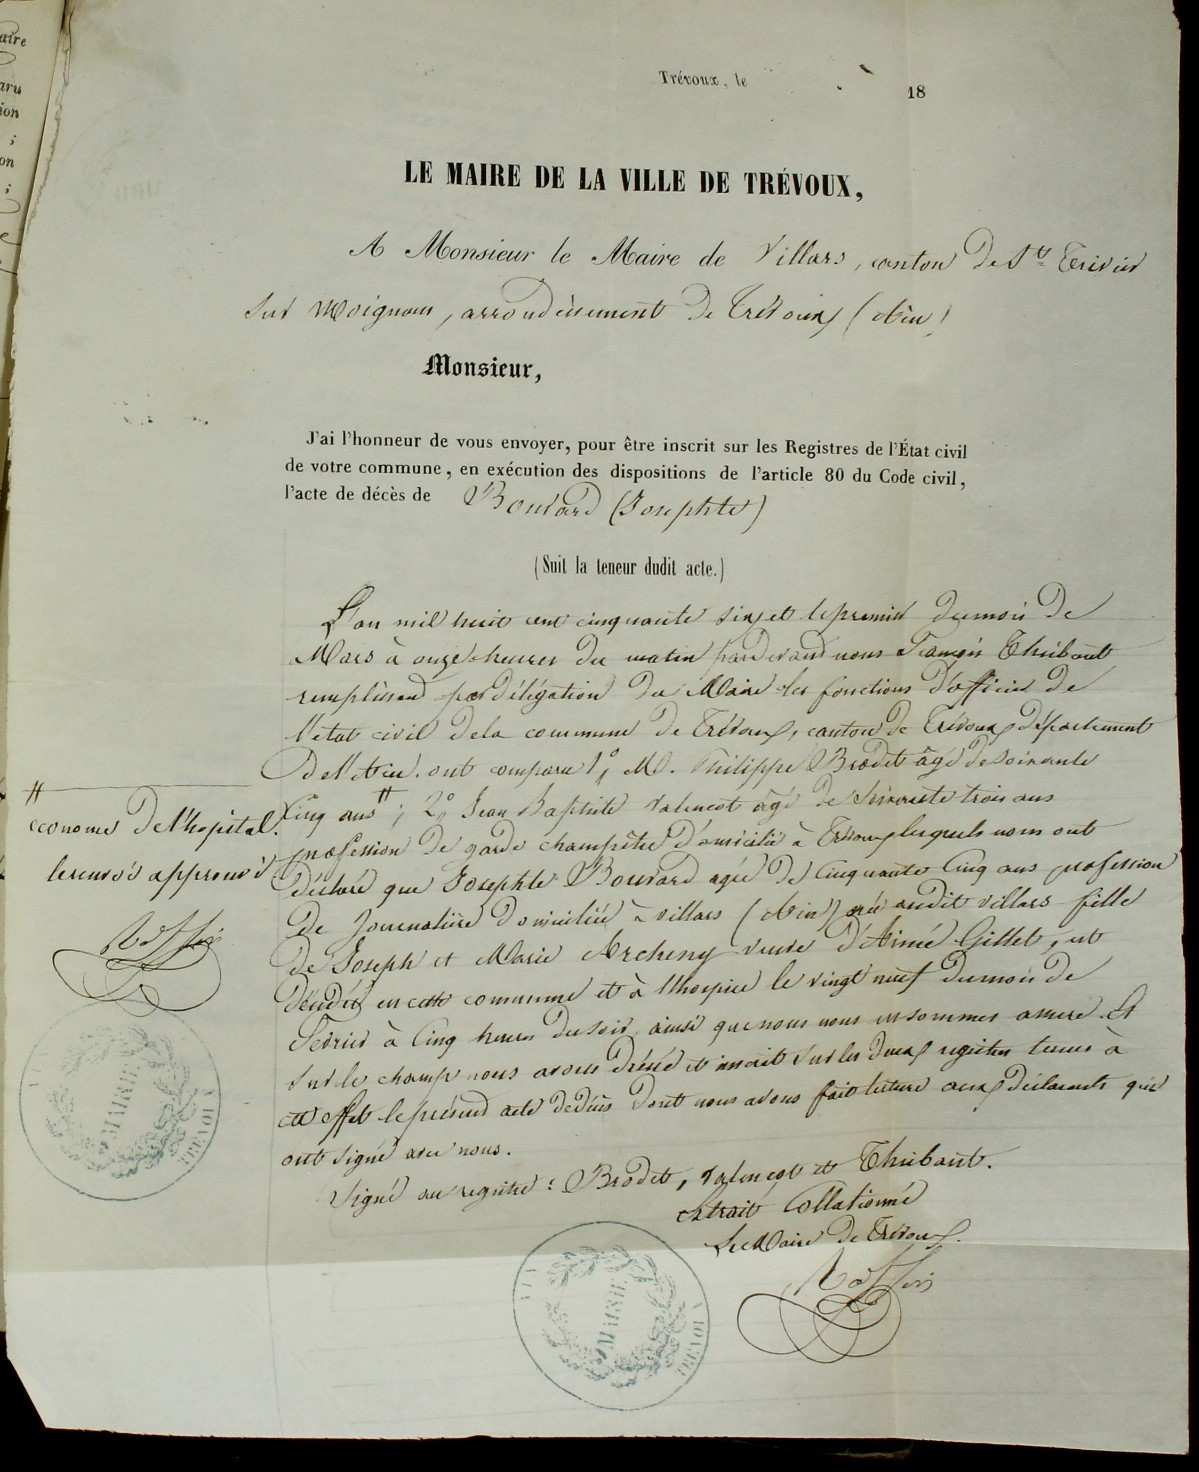 Trévoux, le 18
LE MAIRE DE LA VILLE DE TRÉVOUX,
A Monsieur le Maire de Villars, canton de St Trivier
sur Moignans, arrondissement de Trévoux (Ain)
Monsieur,
J'ai l'honneur de vous envoyer, pour être inscrit sur les Registres de l'État civil
de votre commune, en exécution des dispositions de l'article 80 du Code civil,
l'acte de décès de Bouvard (Josephte)
(Suit la teneur dudit acte.)
L'an mil huit cent cinquante six et le premier du mois de
Mars à onze heures du matin pardevant nous François Thiébaut
remplissant par délégation du Maire les fonctions d'officier de
l'état civil de la commune de Trévoux, canton de Trévoux département
de l'Ain. ont comparu 1° M. Philippe Brodet âgé de soixante
cinq ans #; 2° Jean Baptiste Valencot âgé de soixante trois ans
profession de garde champêtre domicilié à Trévoux lesquels nous ont
déclaré que Josephte Bouvard agée de cinquante cinq ans profession
de journalière domiciliée à Villars (Ain) née audit Villars fille
de Joseph et Marie Archeny veuve d'Aimé Gillet, est
décédée en cette commune et à l'hospice le vingt neuf du mois de
Février à cinq heures du soir ainsi que nous nous en sommes assuré. Et
sur le champ nous avons dressé et inscrit sur les deux registres tenus à
cet effet le présent acte de décès dont nous avons fait lecture aux déclarants qui
ont signé avec nous.
Signé au registre : Brodet, Valencot et Thiébaut.
Extrait Collationné
Le Maire de Trévoux.
#
econome de l'hopital.
le renvoi approuvé
MAIRIE
TREVOUX
MAIRIE
TREVOUX